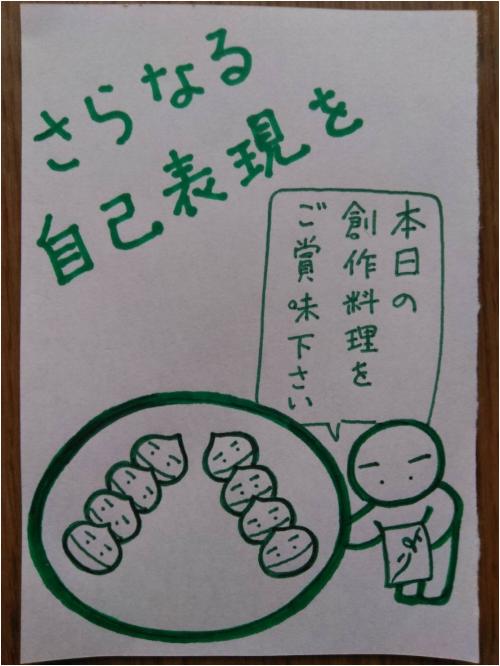 さらなる
自己表現を
本日の
創作料理を
ご賞味下さい